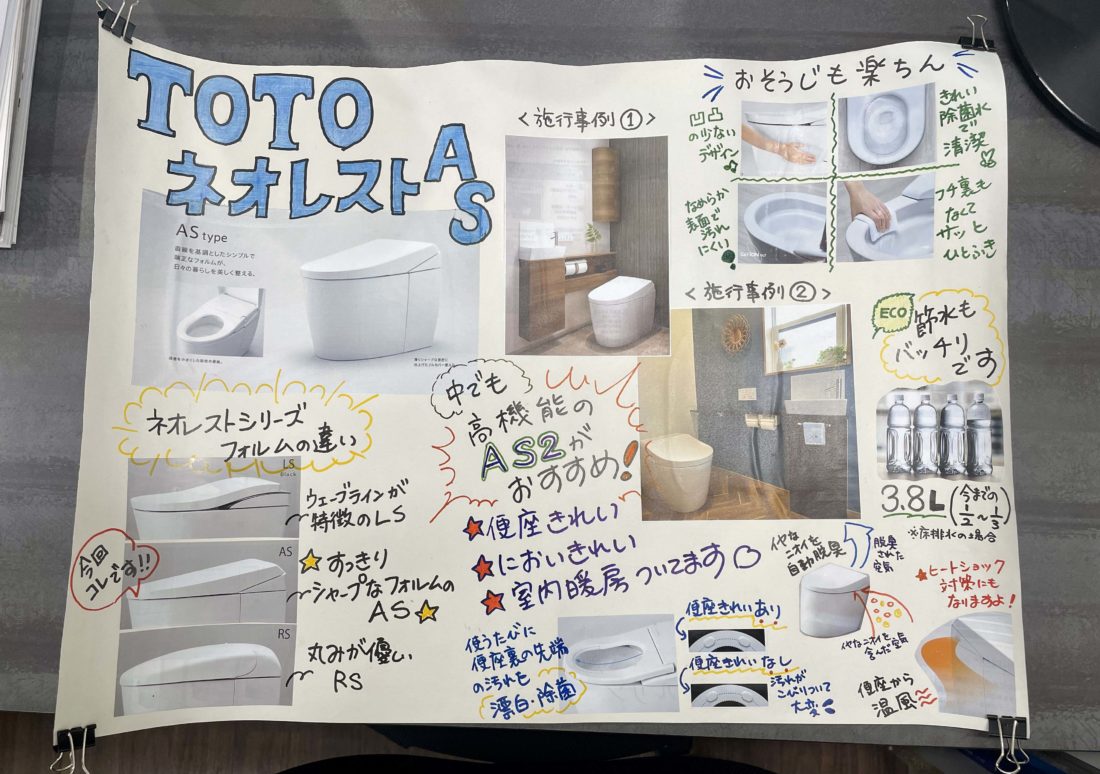 TOTO
ネオレストAS
AS type
直線を基調としたシンプルで
端正なフォルムが、
日々の暮らしを美しく整える。
<施行事例①>
おそうじも楽ちん
凹凸
の少ない
デザイン
きれい
除菌水
で
清潔
なめらか
表面で
汚れ
にくい
フチ裏も
なくて
サッと
ひとふき
<施行事例②>
ECO
節水も
バッチリ
です
3.8L(今までの1/2~1/3)
※床排水の場合
ネオレストシリーズ
フォルムの違い
LS
Black
ウェーブラインが
特徴のLS
今回
コレです!!
AS
すっきり
シャープなフォルムの
AS
RS
丸みが優しい
RS
中でも
高機能の
AS2が
おすすめ!
★便座きれい
★においきれい
★室内暖房ついてます
使うたびに
便座裏の先端
の汚れを
漂白・除菌
便座きれいあり
便座きれいなし
汚れが
こびりついて
大変
イヤなニオイを
自動脱臭
脱臭
された
空気
イヤなニオイを
含んだ空気
★ヒートショック
対策にも
なりますよ!
便座から
温風